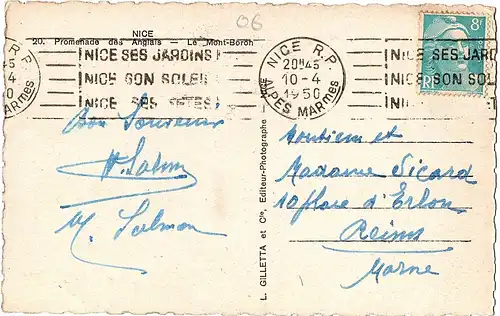 06
NICE
20. Promenade des Anglais — Le Mont-Boron
NICE SES JARDINS
NICE SON SOLEIL
NICE SES FÊTES
NICE R.P.
20H45
10-4
1950
ALPES MARmes
8F
RF
NICE SES JARD
NICE SON SOL
NICE
Bon Souvenir
M. Salmon
L. GILLETTA et Cie, Editeur-Photographe — NICE
Monsieur et
Madame Sicard
10 place d'Erlon
Reims
Marne